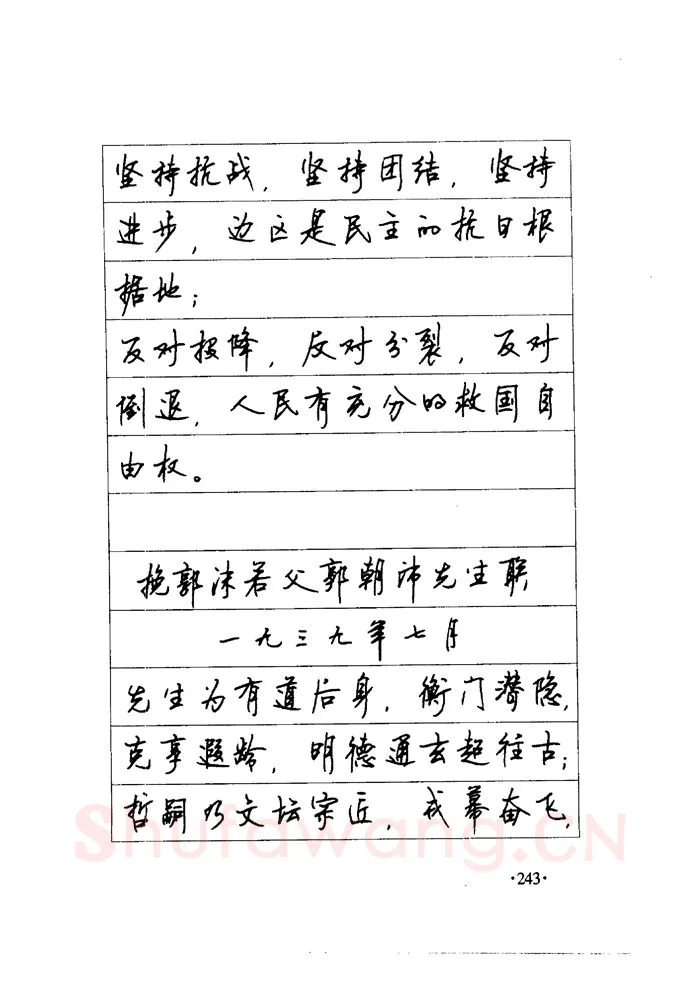 坚持抗战，坚持团结，坚持
进步，边区是民主的抗日根
据地；
反对投降，反对分裂，反对
倒退，人民有充分的救国自
由权。
挽郭沫若父郭朝沛先生联
一九三九年七月
先生为有道后身，衡门潜隐，
克享遐龄，明德通玄超往古；
哲嗣乃文坛宗匠，戎幕奋飞，
Shufawang.CN
·243·